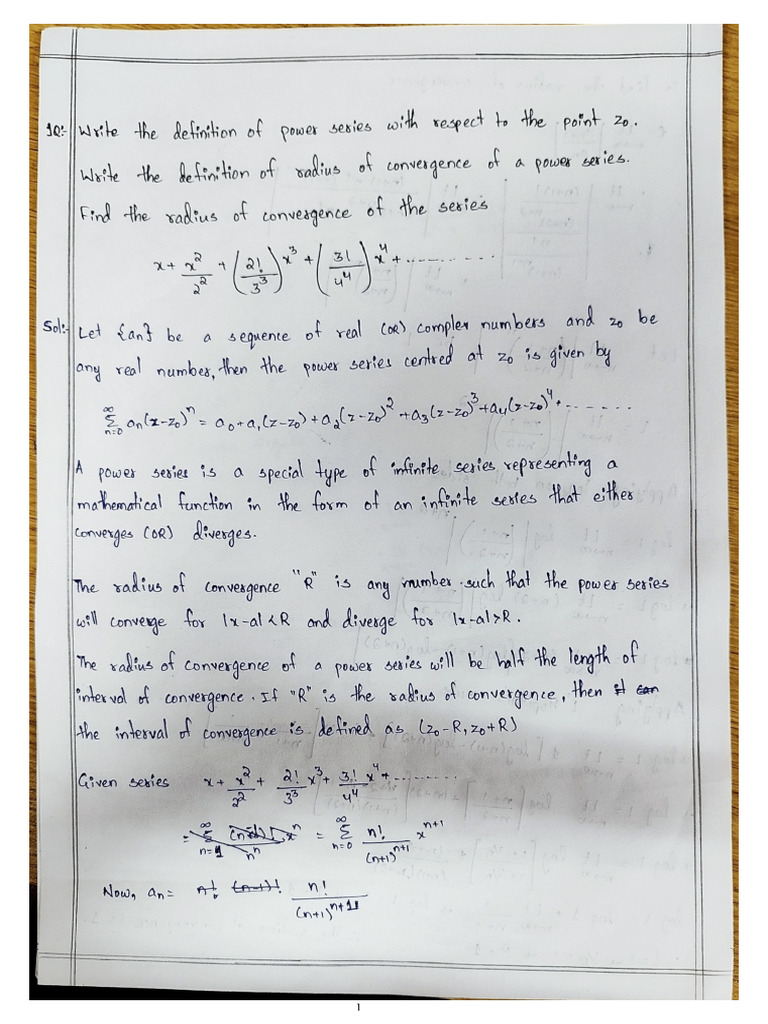 1Q:- Write the definition of power series with respect to the point z₀.
Write the definition of radius of convergence of a power series.
Find the radius of convergence of the series
x + x²/2² + (2!/3³)x³ + (3!/4⁴)x⁴ + ..........
Sol:- Let {an} be a sequence of real (OR) complex numbers and z₀ be
any real number, then the power series centred at z₀ is given by
∞Σn=0 an(z-z₀)ⁿ = a₀+a₁(z-z₀)+a₂(z-z₀)²+a₃(z-z₀)³+a₄(z-z₀)⁴+.......
A power series is a special type of infinite series representing a
mathematical function in the form of an infinite series that either
converges (OR) diverges.
The radius of convergence "R" is any number such that the power series
will converge for |x-a|<R and diverge for |x-a|>R.
The radius of convergence of a power series will be half the length of
interval of convergence. If "R" is the radius of convergence, then it can
the interval of convergence is defined as (z₀-R, z₀+R)
Given series x + x²/2² + 2!/3³ x³ + 3!/4⁴ x⁴ + ..........
= ∞Σn=1 (n-1)!/nⁿ xⁿ = ∞Σn=0 n!/(n+1)ⁿ⁺¹ xⁿ⁺¹
Now, an = n! (n-1)! n!/(n+1)ⁿ⁺¹
1